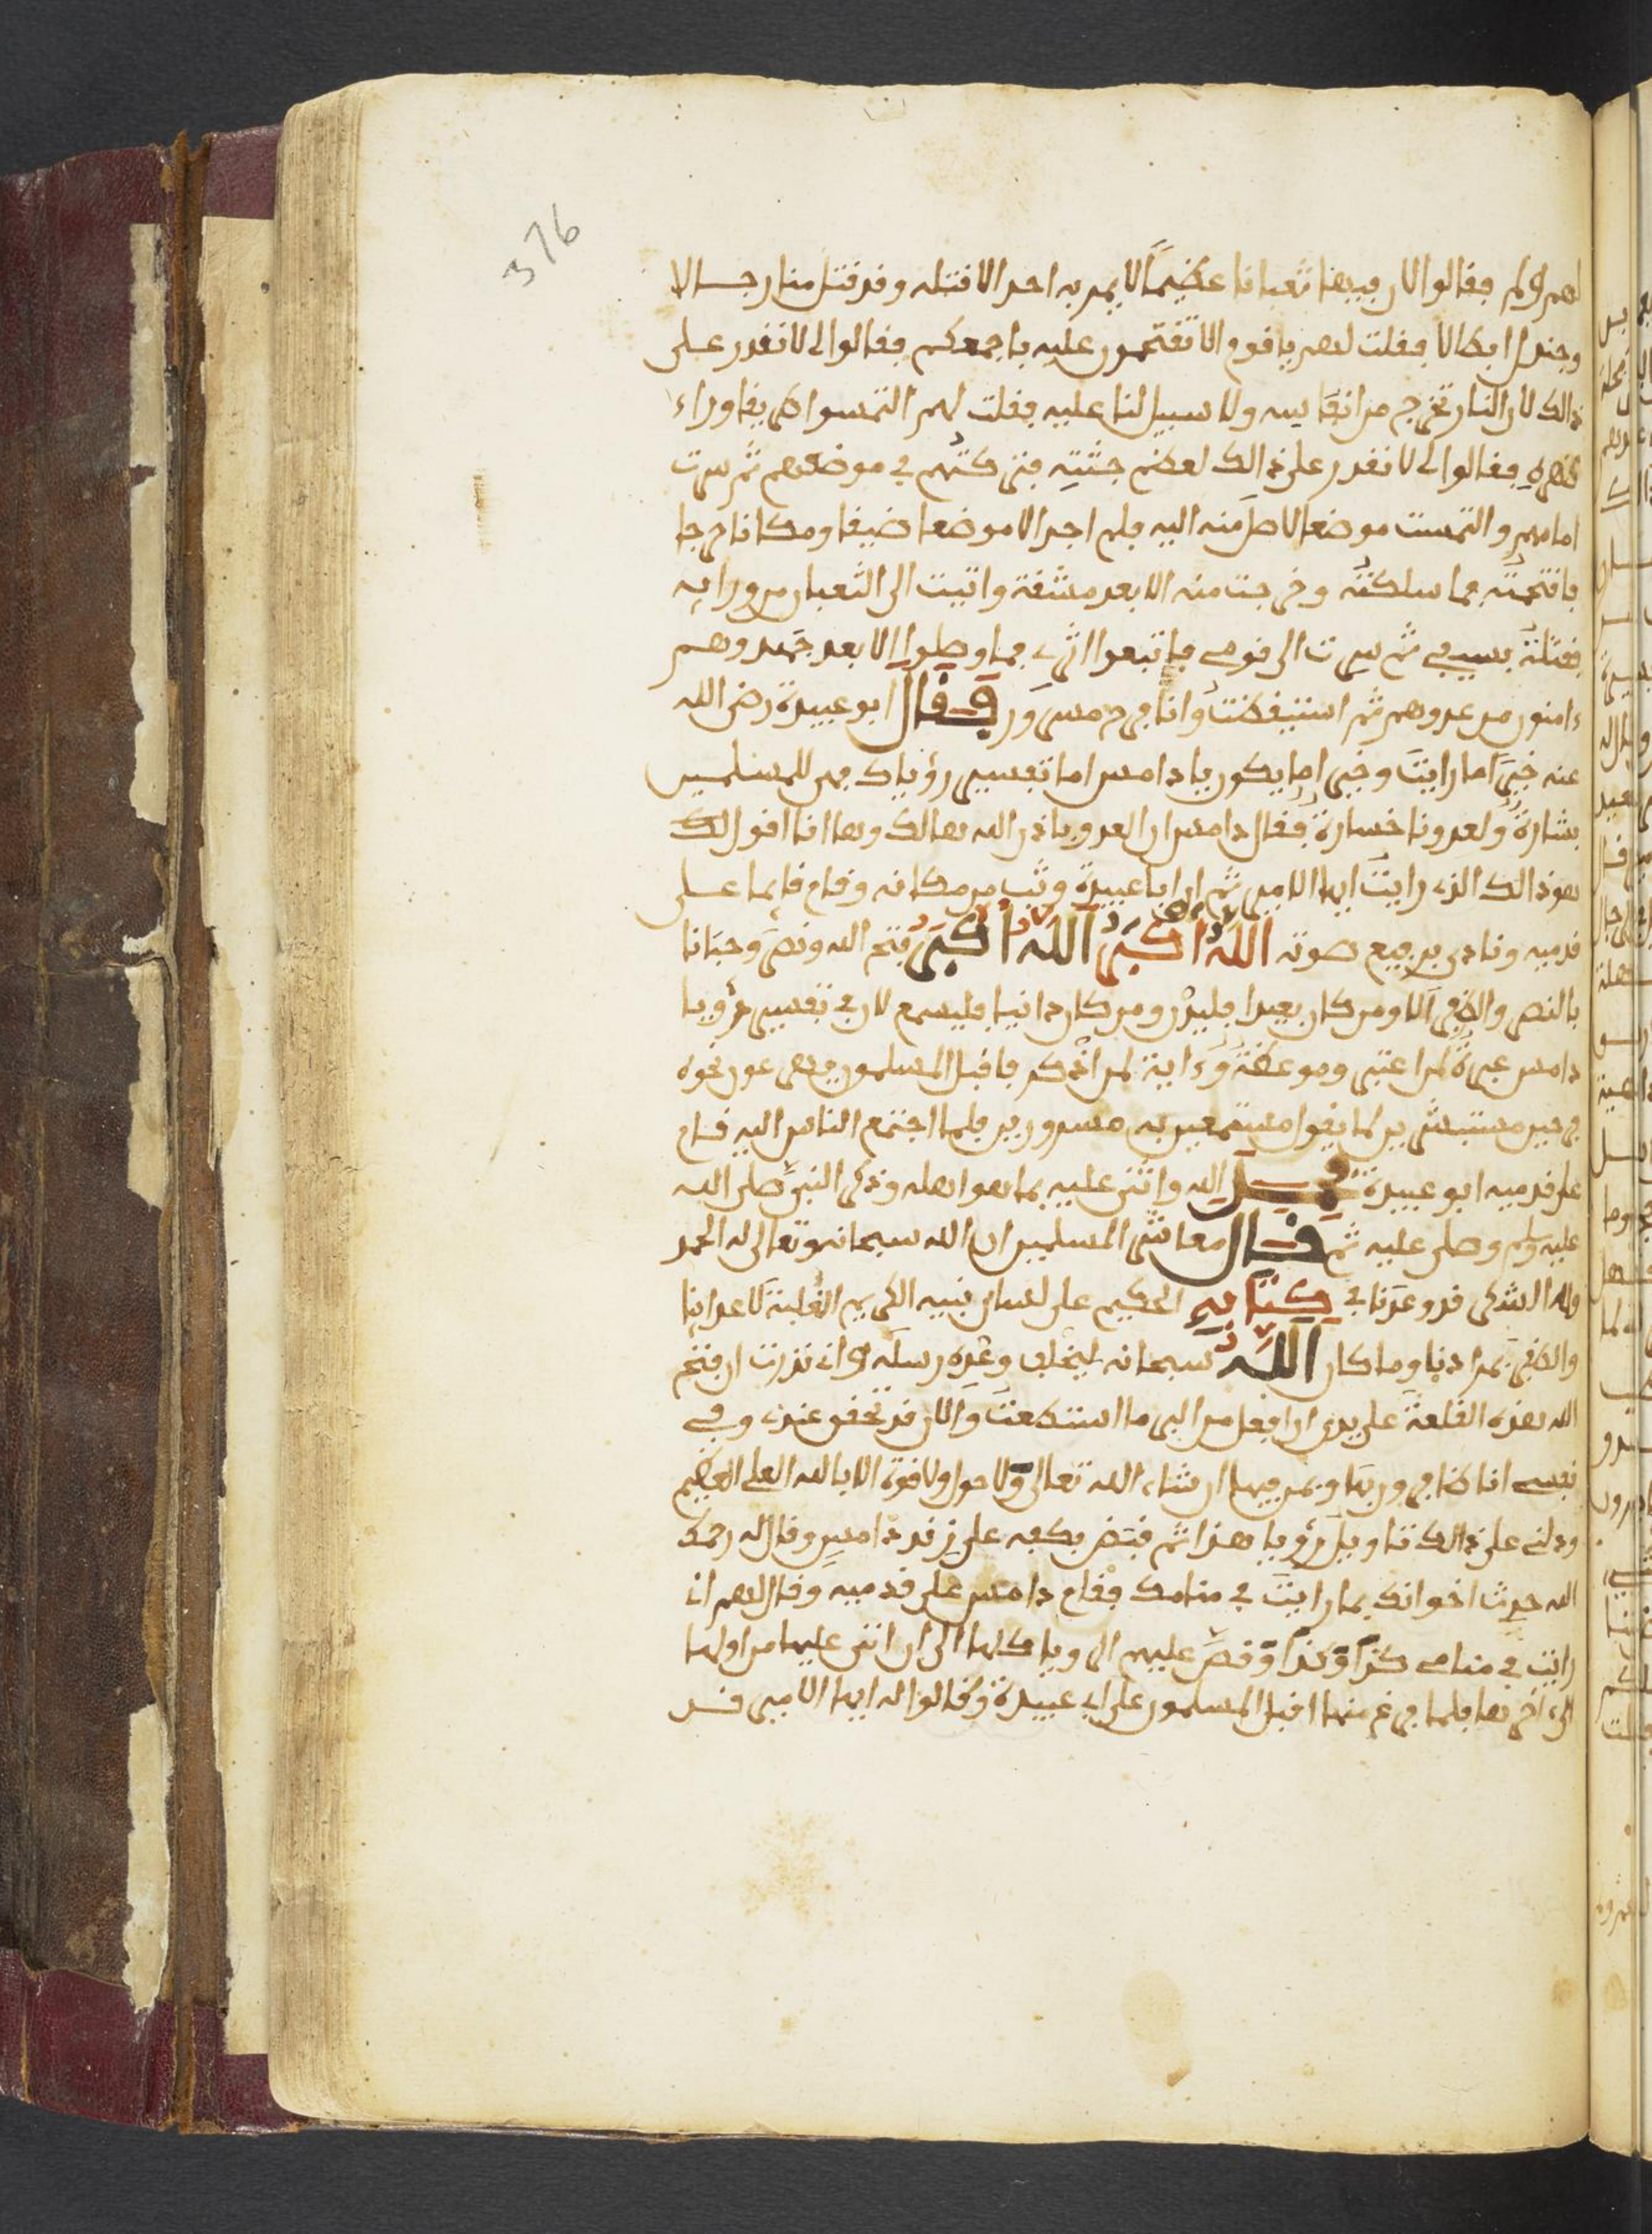 376
لهم ولم فقالوا لان فيها ثعبانا عظيمًا لا يمر به احد الا قتله وقد قتل منا رجالا
وجندل ابطالا فقلت لهم يا قوم الا تقتحمون عليه باجمعكم فقالوا لا نقدر على
ذالك لان النار تخرج من انقابه ولا سبيل لنا عليه فقلت لهم التمسوا طريقا وراء
ظهره فقالوا لا نقدر على ذالك لعظم جثته فتركتهم في موضعهم ثم سرت
امامهم والتمست موضعا لاصل منه اليه فلم اجد الا موضعا ضيقا ومكانا حرجا
فاقتحمته فما سلكته وخرجت منه الا بعد مشقة واتيت الى الثعبان من ورايه
فقتلته بسيفي ثم سرت الى قومي فاتبعوا اثري فما وصلوا الا بعد جهد وهم
ءامنون من عدوهم ثم استيقظت وانا فرح مسرور فقال ابو عبيدة رضي الله
عنه خيرًا ما رايت وخيرا ما يكون يا دامس اما تفسير رؤياك فهي للمسلمين
بشارة ولعدونا خسارة فقال دامس ان العدو باذن الله هالك وها انا اقول لك
هو ذالك الذي رايت ايها الامير ثم ان ابا عبيدة وثب من مكانه وقام قايما على
قدميه ونادى برفيع صوته الله اكبر الله اكبر فتح الله ونصر وحبانا
بالنصر والظفر الا ومن كان بعيدا فليدن ومن كان دانيا فليسمع لان في تفسير رؤيا
دامس عبرة لمن اعتبر وموعظة وءاية لمن اذكر فاقبل المسلمون يهرعون نحوه
فرحين مستبشرين لما يقول مستمعين به مسرورين فلما اجتمع الناس اليه قام
على قدميه ابو عبيدة فحمد الله واثنى عليه بما هو اهله وذكر النبي صلى الله
عليه وسلم وصلى عليه ثم قال معاشر المسلمين ان الله سبحانه وتعالى له الحمد
وله الشكر قد وعدنا في كتابه الحكيم على لسان نبيه الكريم الغلبة لاعداينا
والظفر بمرادنا وما كان الله سبحانه ليخلف وعده رسله واني نذرت ان فتح
الله هذه القلعة على يدي ان افعل من البر ما استطعت والان قد تحقق عندي وفي
نفسي انا ظافرون بها وبمن فيها ان شاء الله تعالى ولا حول ولا قوة الا بالله العلي العظيم
ودلني على ذالك تاويل رؤيا هذا ثم قبض بكفه على زند دامس وقال له رحمك
الله حدث اخوانك بما رايت في منامك فقام دامس على قدميه وقال لهم اني
رايت في منامي كذا وكذا وقص عليهم الرويا كلها الى ان اتى عليها من اولها
الى ءاخرها فلما فرغ منها اقبل المسلمون على ابي عبيدة وقالوا له ايها الامير قد